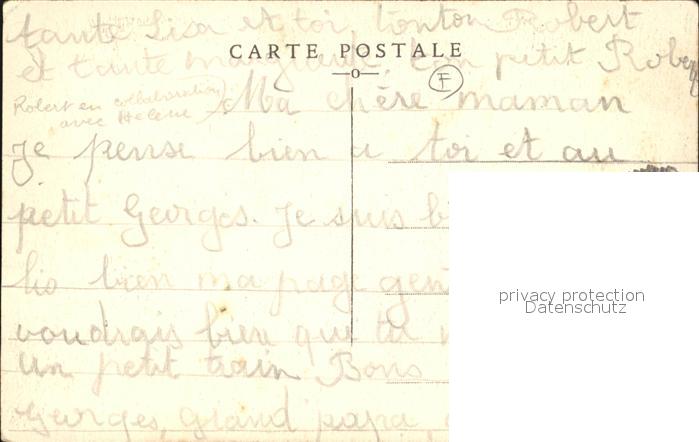 tante Lisa et toi, tonton Robert
et tante ton petit Robert
CARTE POSTALE
F
Robert en collaboration
avec Hélène
Ma chère maman
je pense bien a toi et au
petit Georges. Je suis
lis bien ma page
voudrais bien que tu
un petit train Bons
Georges, grand papa
privacy protection
Datenschutz